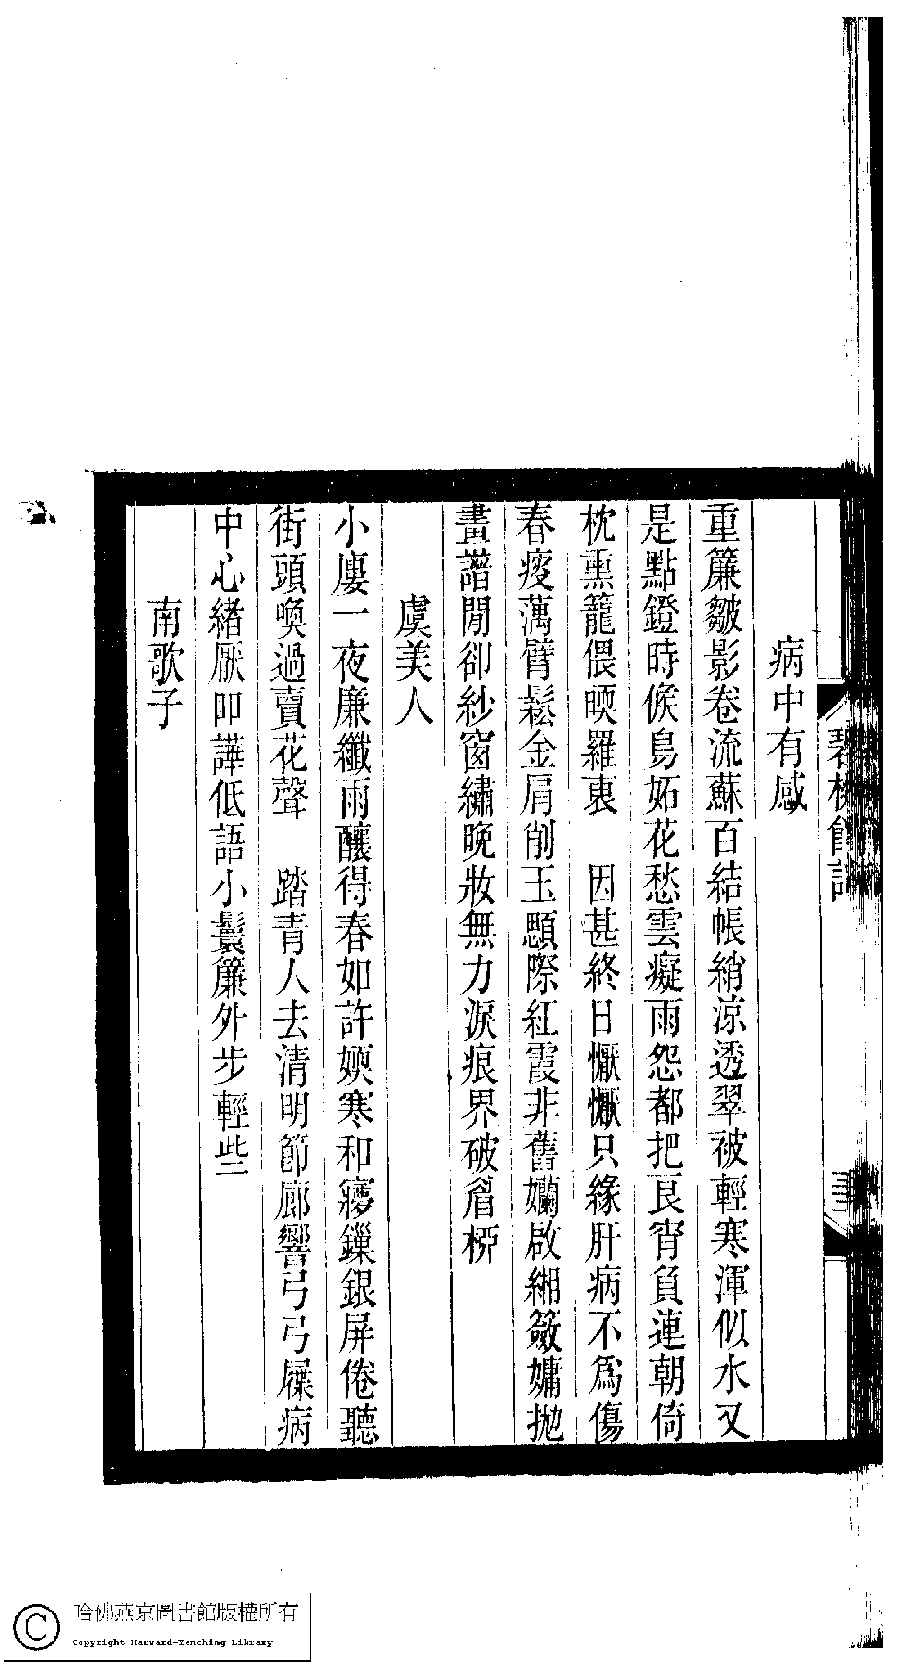 病中有感
重簾皺影卷流蘇百結帳綃涼透翠被輕寒渾似水又
是點鐙時候鳥妬花愁雲癡雨怨都把良宵負連朝倚
枕熏籠偎煗羅裏　因甚終日懨懨只緣肝病不爲傷
春瘦藕臂鬆金肩削玉顋際紅霞非舊嬾啟緗籢嫞拋
畫譜閒卻紗窗繡晚妝無力淚痕界破眉桺
虞美人
小廔一夜廉纖雨釀得春如許㜛寒和㝱鏁銀屏倦聽
街頭喚過賣花聲　踏青人去清明節廊響弓弓屧病
中心緒厭叩譁低語小鬟簾外步輕些
南歌子
哈佛燕京圖書館版權所有
Copyright Harvard-Yenching Library